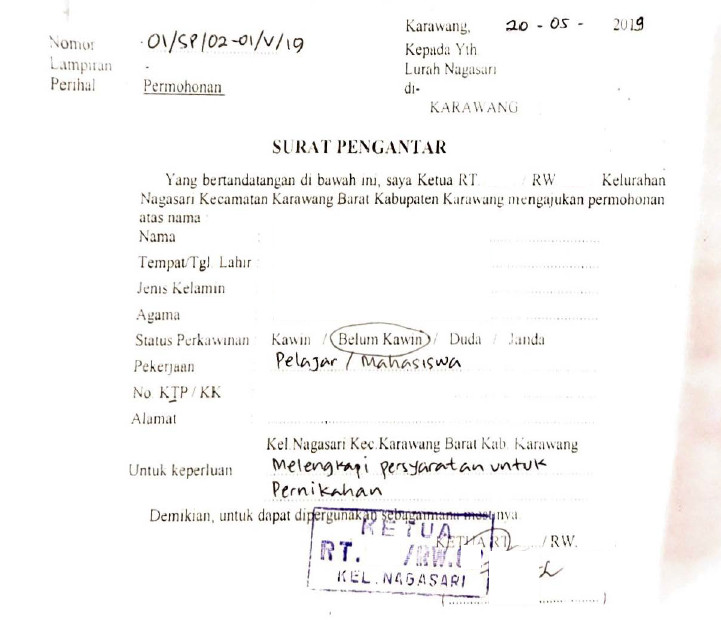 Karawang, 20 - 05 - 2019
Nomor 01/SP/02-01/V/19
Kepada Yth
Lampiran -
Lurah Nagasari
Perihal Permohonan
di-
KARAWANG
SURAT PENGANTAR
Yang bertandatangan di bawah ini, saya Ketua RT. / RW Kelurahan
Nagasari Kecamatan Karawang Barat Kabupaten Karawang mengajukan permohonan
atas nama :
Nama :
Tempat/Tgl. Lahir :
Jenis Kelamin
Agama
Status Perkawinan : Kawin / Belum Kawin / Duda / Janda
Pekerjaan Pelajar / Mahasiswa
No. KTP / KK
Alamat :
Kel.Nagasari Kec.Karawang Barat Kab. Karawang
Untuk keperluan Melengkapi persyaratan untuk
Pernikahan
Demikian, untuk dapat dipergunakan sebagaimana mestinya.
KETUA RT. /RW.
KETUA
RT. /RW.
KEL. NAGASARI